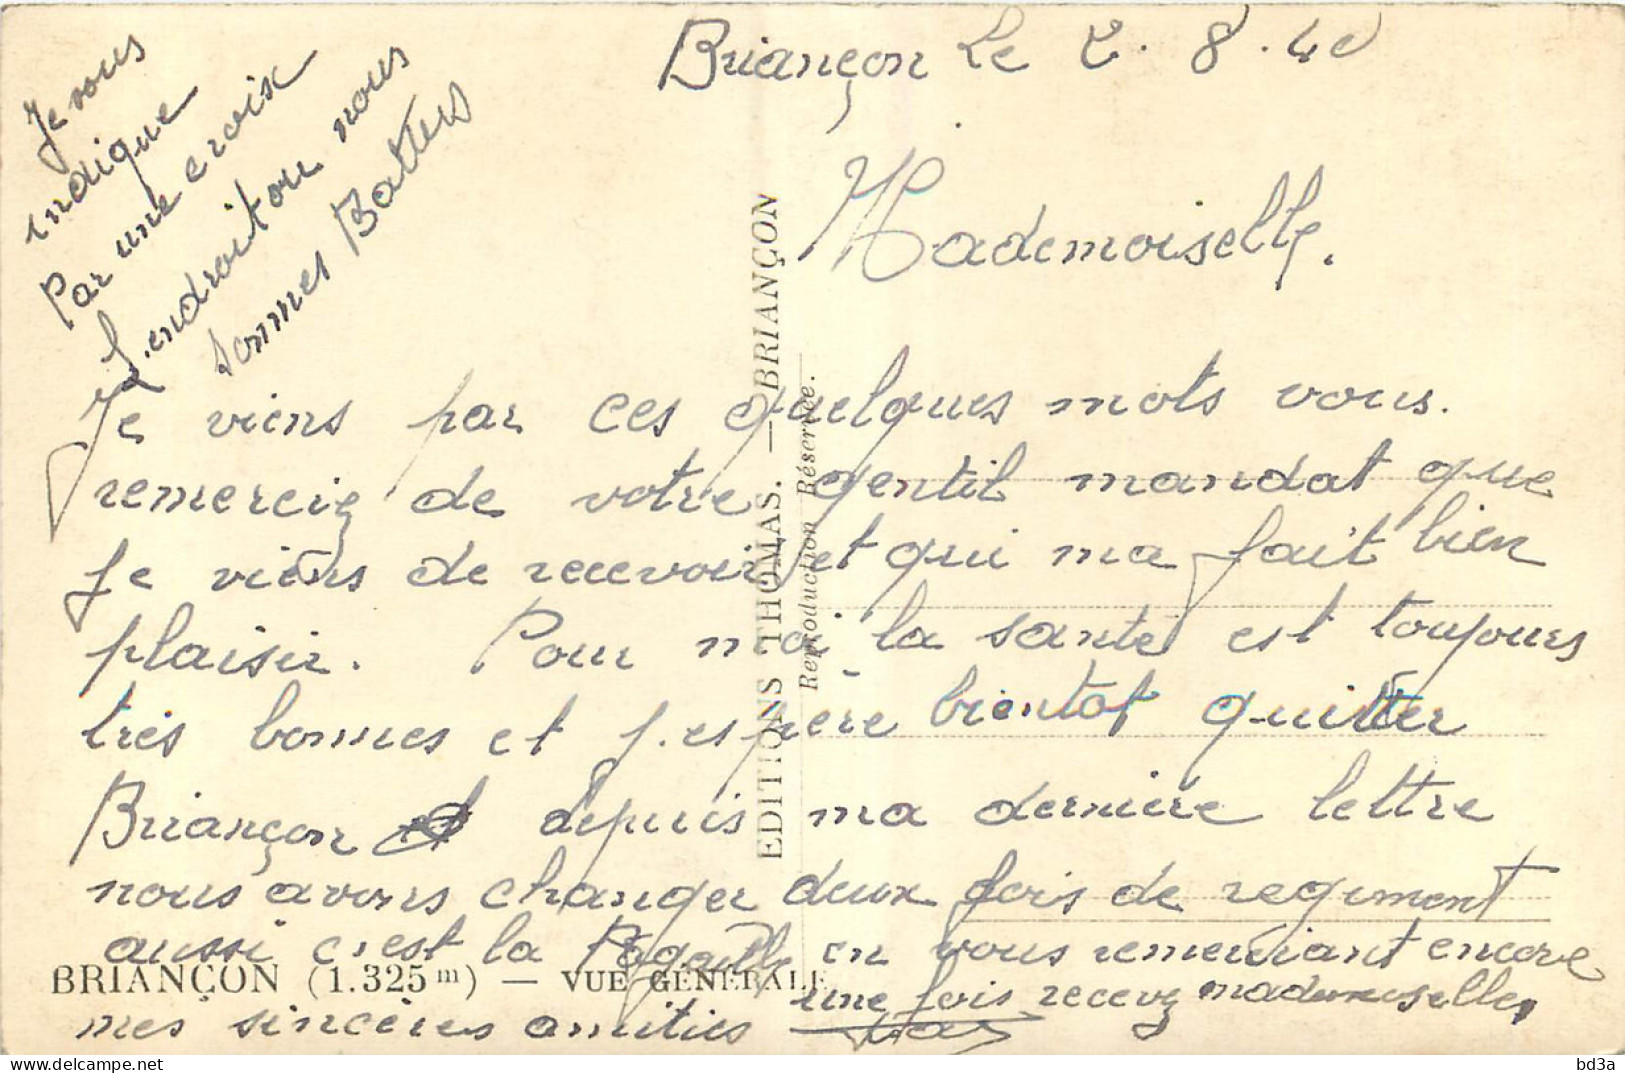 Briançon Le 2.8.40
Je vous
indique
Par une croix
L.endroit ou nous
sommes Battus
Mademoiselle.
Je viens par ces quelques mots vous.
remerciez de votre gentil mandat que
Je viens de recevoir et qui ma fait bien
plaisir. Pour moi la santé est toujours
très bonnes et j.espère bientot quitter
Briançon depuis ma dernière lettre
nous avons changer deux fois de regiment
aussi c'est la en vous remerciant encore
une fois recevez mademoiselle,
mes sincères amitiés
EDITIONS THOMAS. — BRIANÇON
Reproduction Réservée.
BRIANÇON (1.325 m) — VUE GÉNÉRALE
bd3a